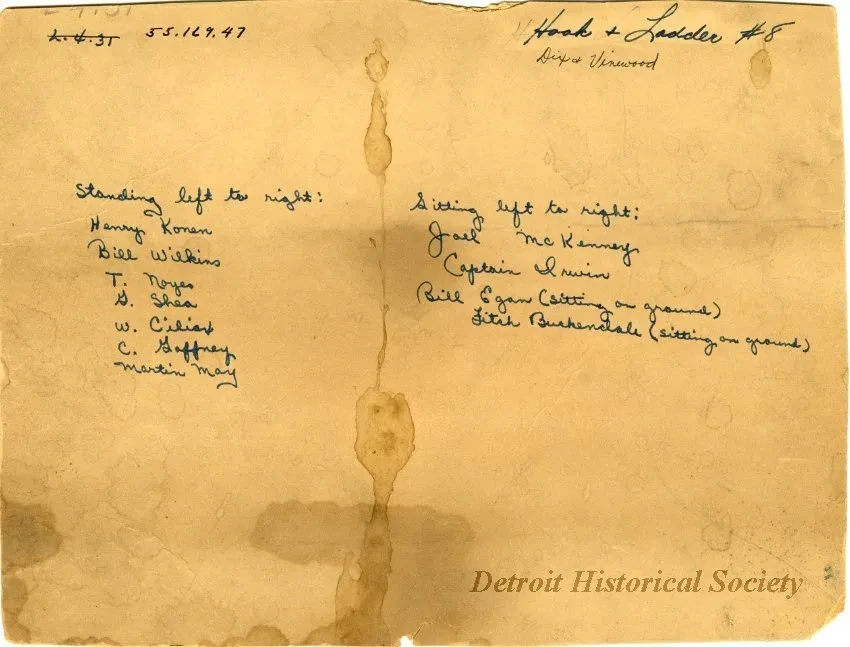 L.4.31 55.169.47
Hook & Ladder #8
Dix & Vinewood
Standing left to right:
Henry Konen
Bill Wilkins
T. Noyes
G. Shea
W. Ciliax
C. Gaffney
Martin May
Sitting left to right:
Jack McKenney
Captain Irwin
Bill Egan (sitting on ground)
Fitch Buskendale (sitting on ground)
Detroit Historical Society